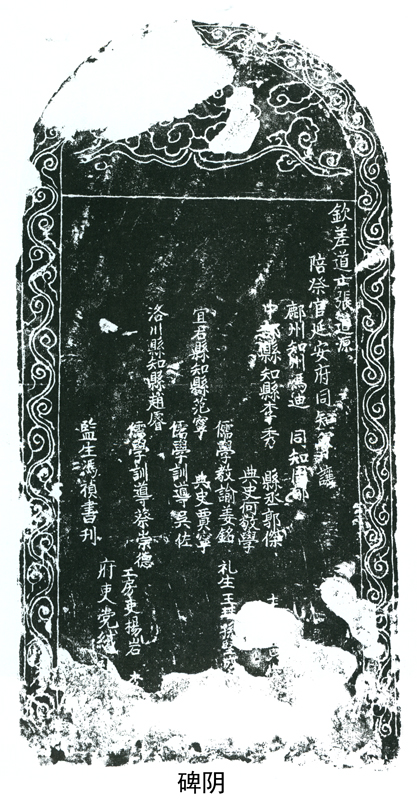 欽差道士張道源
陪祭官延安府同知
鄜州知州馮迪 同知周
中部縣知縣李秀 縣丞郭傑
典史何敬學
儒學教諭姜銘 礼生王
宜君縣知縣范寧 典史賈寧
儒學訓導吳佐
洛川縣知縣趙睿
儒學訓導蔡崇德 工房吏楊岩
府吏党
監生馮禎書刊
碑阴